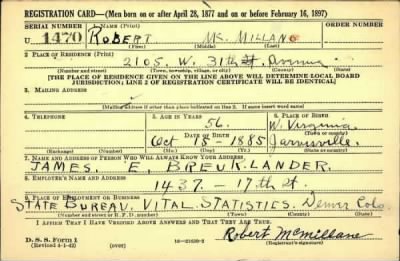 REGISTRATION CARD—(Men born on or after April 28, 1877 and on or before February 16, 1897)
SERIAL NUMBER 1. NAME (Print) ORDER NUMBER
U 1470 ROBERT MC. MILLANE
(First) (Middle) (Last)
2. PLACE OF RESIDENCE (Print)
2105. W. 31st. Avenue
(Number and street) (Town, township, village, or city) (County) (State)
[THE PLACE OF RESIDENCE GIVEN ON THE LINE ABOVE WILL DETERMINE LOCAL BOARD
JURISDICTION; LINE 2 OF REGISTRATION CERTIFICATE WILL BE IDENTICAL]
3. MAILING ADDRESS
[Mailing address if other than place indicated on line 2. If same insert word same]
4. TELEPHONE 5. AGE IN YEARS 6. PLACE OF BIRTH
56. W. Virginia
DATE OF BIRTH (Town or county)
Oct 15 - 1885 Jarvisville.
(Exchange) (Number) (Mo.) (Day) (Yr.) (State or country)
7. NAME AND ADDRESS OF PERSON WHO WILL ALWAYS KNOW YOUR ADDRESS
JAMES. E. BREUKLANDER.
8. EMPLOYER'S NAME AND ADDRESS
1437 - 17th st.
9. PLACE OF EMPLOYMENT OR BUSINESS
STATE BUREAU. VITAL. STATISTICS. Denver Colo.
(Number and street or R. F. D. number) (Town) (County) (State)
I AFFIRM THAT I HAVE VERIFIED ABOVE ANSWERS AND THAT THEY ARE TRUE.
D. S. S. Form 1
(Revised 4-1-42) (over) 16—21630-2
Robert McMillane
(Registrant's signature)